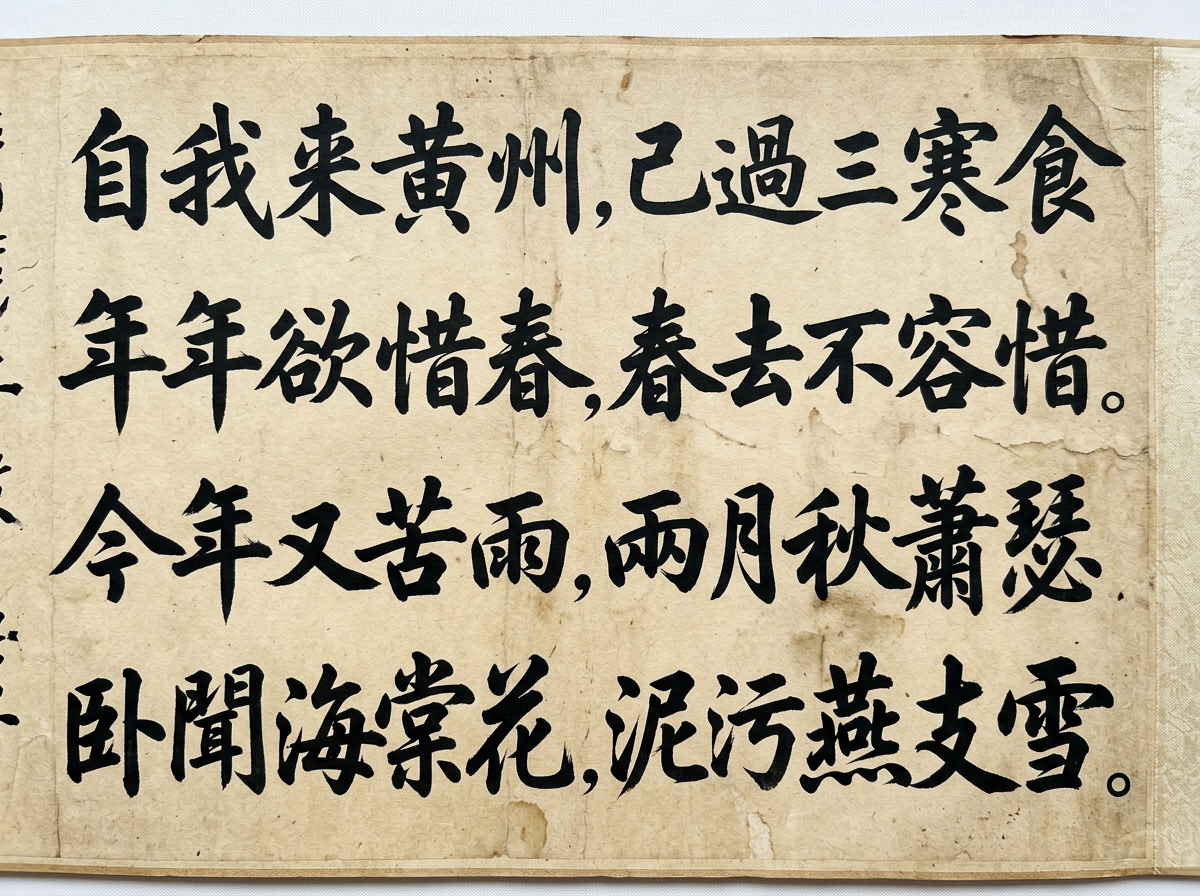 自我来黄州,己過三寒食
年年欲惜春,春去不容惜。
今年又苦雨,兩月秋蕭瑟
卧聞海棠花,泥污燕支雪。